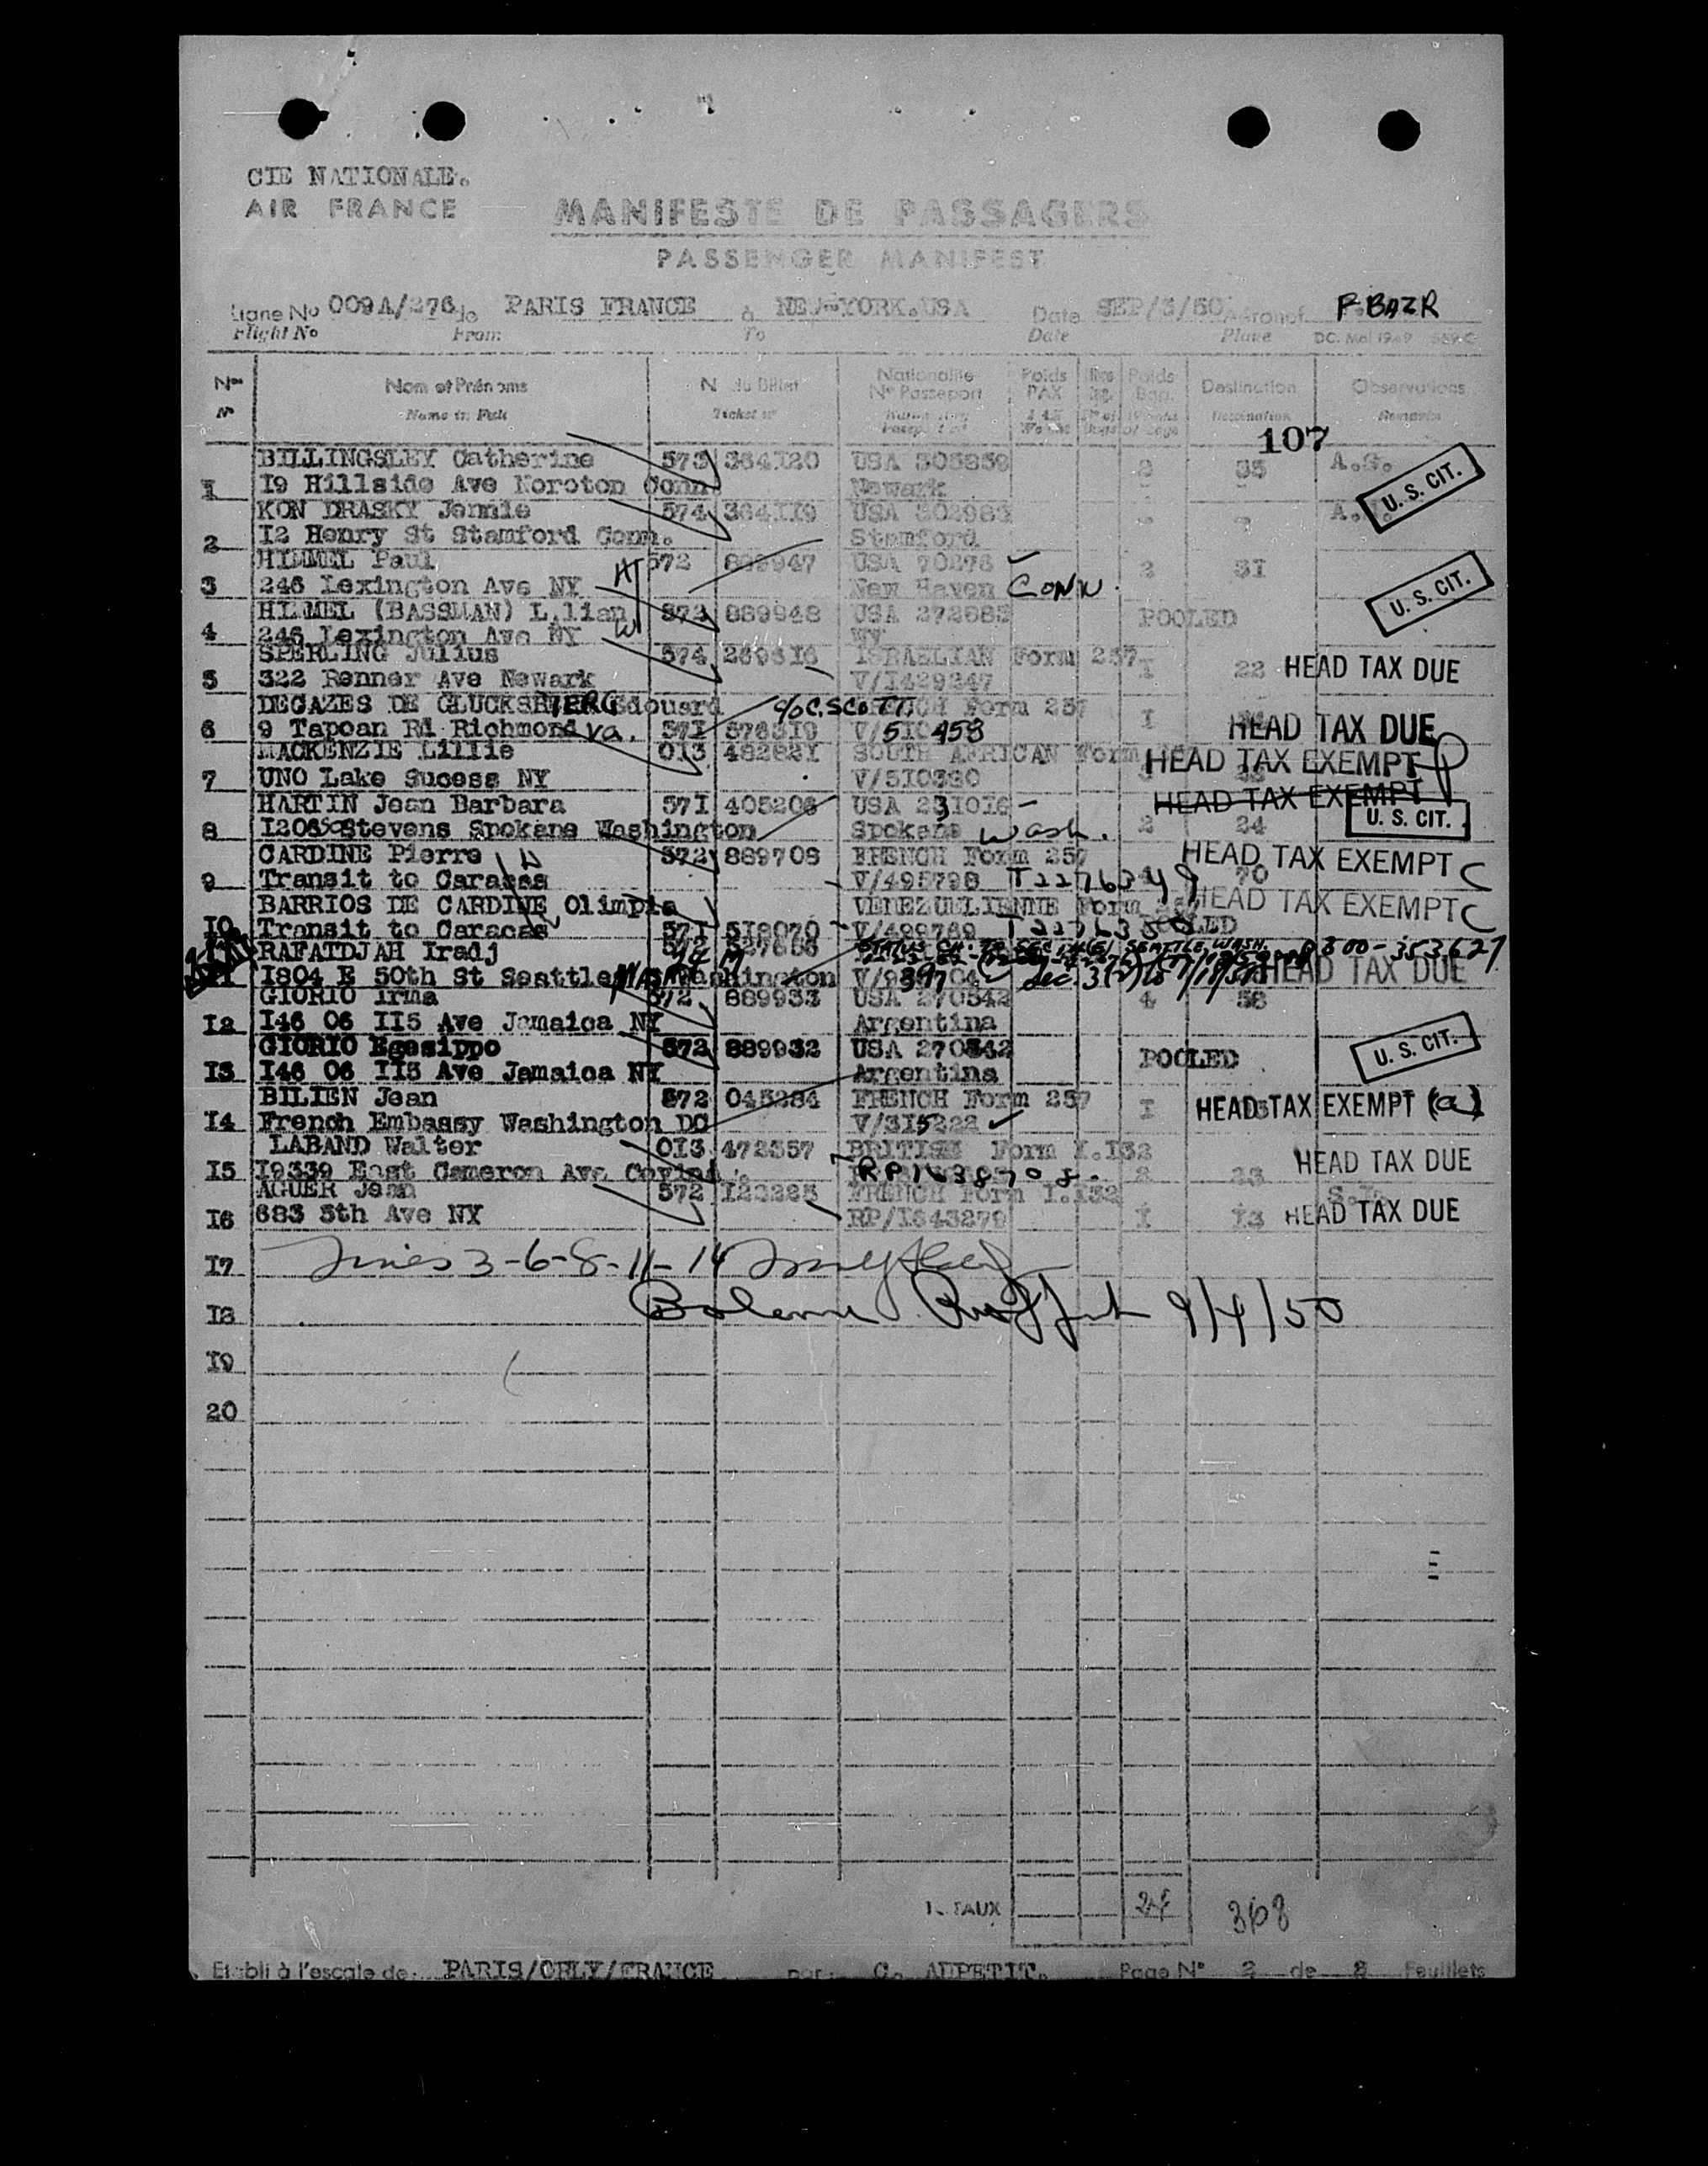 CIE NATIONALE.
AIR FRANCE
MANIFESTE DE PASSAGERS
PASSENGER MANIFEST
Ligne No 009A/276 de PARIS FRANCE à NEW-YORK.USA Date SEP/3/50 Aéronef F-BAZR
Flight No From To Date Plane DC. Mai 1949
Nos Nom et Prénoms N du Billet Nationalité Nº Passeport Poids PAX Poids Bag. Destination Observations
No Name in Full Ticket No Destination Remarks
107
BILLINGSLEY Catherine 573 364120 USA 305859 2 35 A.G.
1 I9 Hillside Ave Noroton Conn. Newark U. S. CIT.
KON DRASKY Jennie 574 364119 USA 302983
2 I2 Henry St Stamford Conn. Stamford
HIMMEL Paul 572 889947 USA 70276 2 3I
3 246 Lexington Ave NY New Haven Conn. U. S. CIT.
HIMMEL (BASSMAN) Lilian 573 889948 USA 272683 POOLED
4 246 Lexington Ave NY NY
SPERLING Julius 574 269616 ISRAELIAN Form 257 I 22 HEAD TAX DUE
5 322 Renner Ave Newark V/I429247
DECAZES DE GLUCKSBERG Edouard c/o C. SCOTT. FRENCH Form 257 I
6 9 Tapoan Rd Richmond Va. 57I 576319 V/510958 HEAD TAX DUE
MACKENZIE Lillie 013 482821 SOUTH AFRICAN Form HEAD TAX EXEMPT
7 UNO Lake Sucess NY V/510330
HARTIN Jean Barbara 57I 405206 USA 231016 HEAD TAX EXEMPT
8 I206 So Stevens Spokane Washington Spokane Wash. 2 24 U. S. CIT.
CARDINE Pierre 572 889708 FRENCH Form 257 HEAD TAX EXEMPT C
9 Transit to Caracas V/495798 T2276349 70
BARRIOS DE CARDINE Olimpia VENEZUELIENNE Form 257 HEAD TAX EXEMPT C
10 Transit to Caracas 571 518070 V/499769 T2276350 POOLED
RAFATDJAH Iradj 572 527656 STATUS CH. TO SEC. SEATTLE, WASH. 0300-353627
11 I804 E 50th St Seattle Washington HEAD TAX DUE
GIORIO Irma 572 889933 USA 270542 4 58
I2 I46 06 II5 Ave Jamaica NY Argentina
GIORIO Egesippo 572 889932 USA 270542 POOLED U. S. CIT.
I3 I46 06 II5 Ave Jamaica NY Argentina
BILIEN Jean 572 045284 FRENCH Form 257 I HEAD TAX EXEMPT (a)
I4 French Embassy Washington DC V/315222
LABAND Walter 013 472357 BRITISH Form I.I32 HEAD TAX DUE
I5 I9339 East Cameron Ave Covina RP 1638708. 2 23
AGUER Jean 572 I23225 FRENCH Form I.I32
I6 683 5th Ave NY RP/I643279 I I3 HEAD TAX DUE
I7 Lines 3-6-8-11-14
18 Balance 9/4/50
I9
20
TOTAUX 24 368
Etabli à l'escale de: PARIS/ORLY/FRANCE par: C. AUPETIT. Page Nº 2 de 8 Feuillets